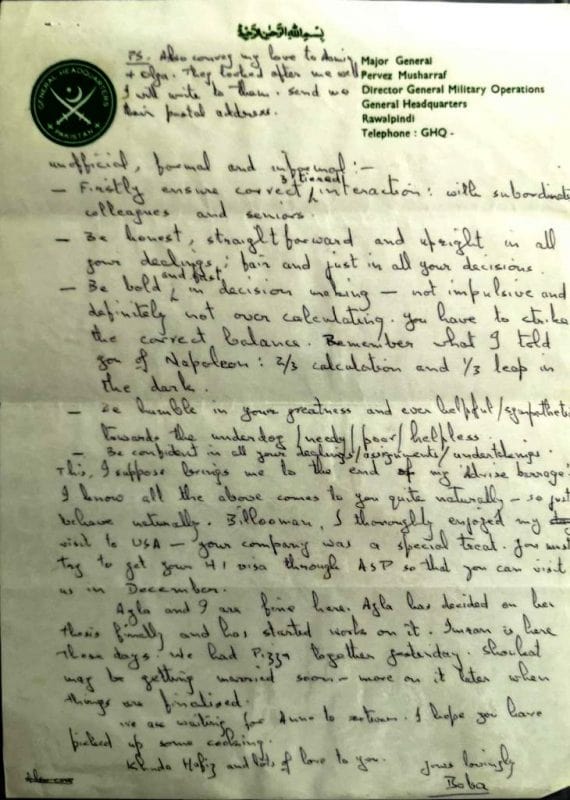 بسم الله الرحمن الرحيم
PS. Also convey my love to
+ Olga. They looked after me well
I will write to them. Send me
their postal address.
GENERAL HEADQUARTERS
PAKISTAN
Major General
Pervez Musharraf
Director General Military Operations
General Headquarters
Rawalpindi
Telephone : GHQ -
unofficial, formal and informal :-
- Firstly ensure correct 3 tiered interaction : with subordinates
colleagues and seniors.
- Be honest, straightforward and upright in all
your dealings ; fair and just in all your decisions.
- Be bold and fast in decision making - not impulsive and
definitely not over calculating. You have to strike
the correct balance. Remember what I told
you of Napoleon : 2/3 calculation and 1/3 leap in
the dark.
- Be humble in your greatness and ever helpful/sympathetic
towards the underdog/needy/poor/helpless.
- Be confident in all your dealings/assignments/undertakings.
This, I suppose brings me to the end of my 'advise barrage'.
I know all the above comes to you quite naturally - so just
behave naturally. Billooman, I thoroughly enjoyed my
visit to USA - your company was a special treat. You must
try to get your H1 visa through ASP so that you can visit
us in December.
Ayla and I are fine here. Ayla has decided on her
thesis finally and has started works on it. Imran is here
these days. We had Pizza together yesterday. Shoukat
may be getting married soon - more on it later when
things are finalised.
We are waiting for Anno to return. I hope you have
picked up some cooking.
Khuda Hafiz and lots of love to you.
Yours lovingly
Baba